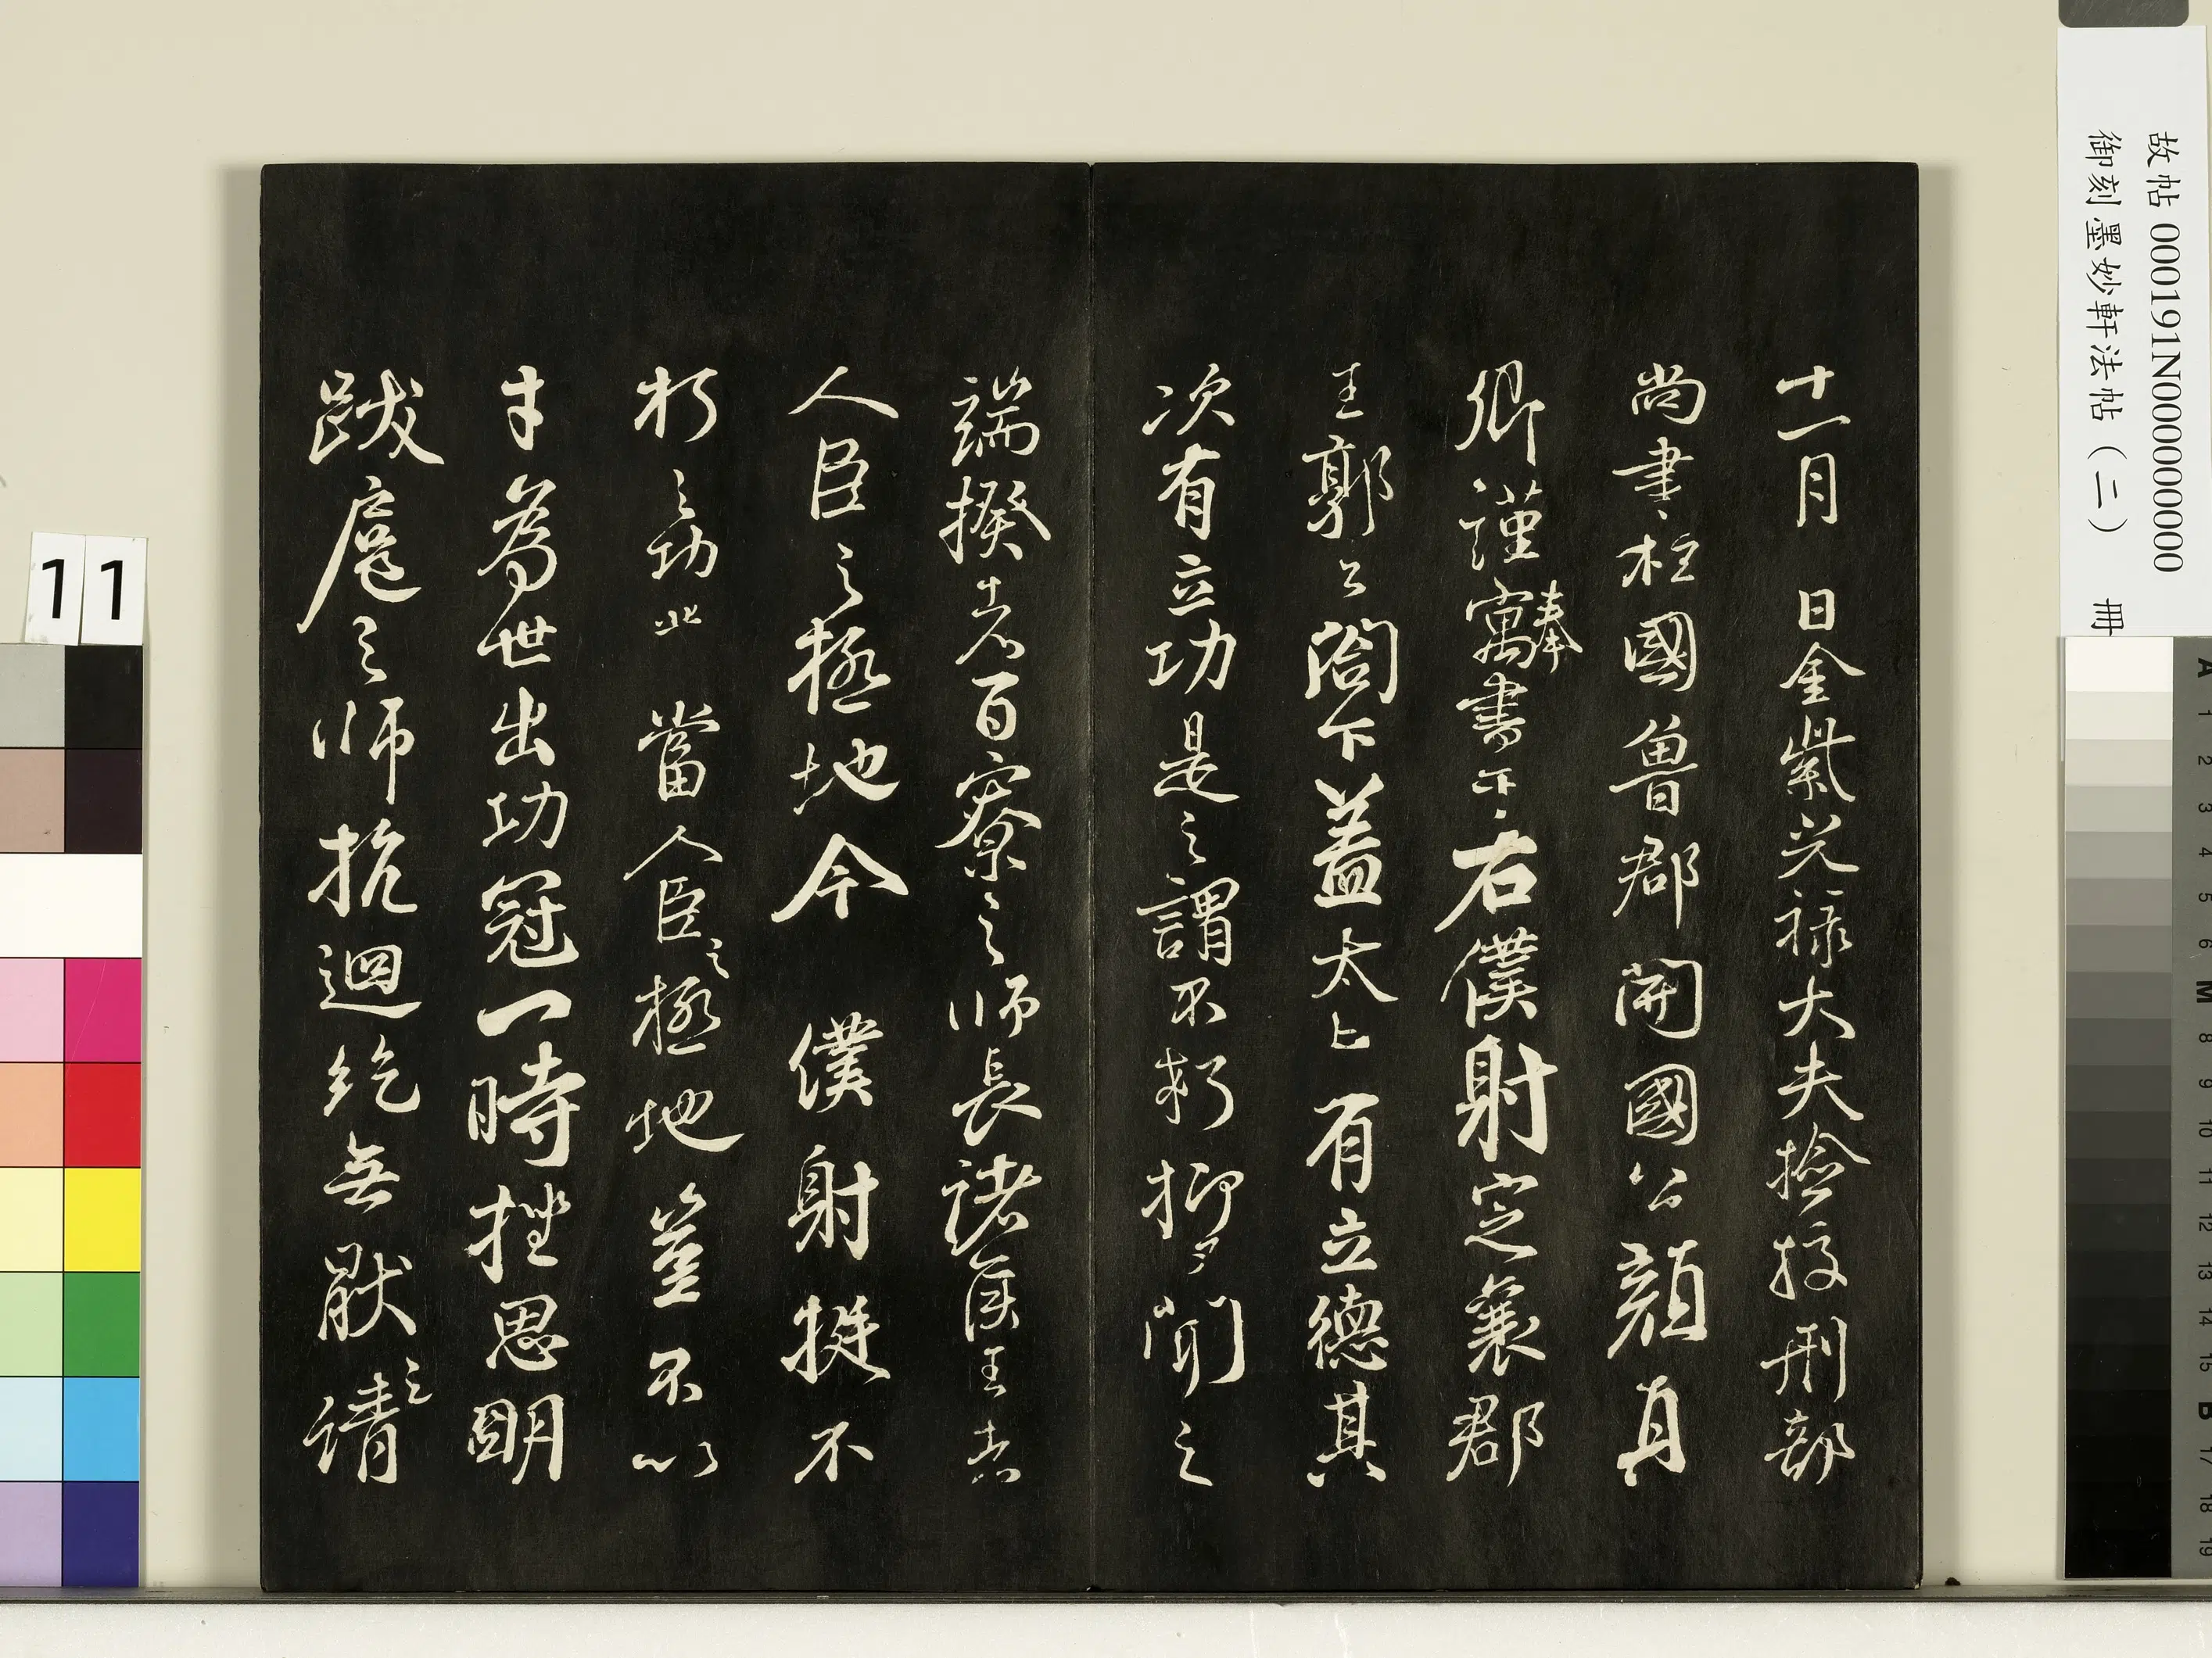 十一月　日金紫光祿大夫檢挍刑部
尚書柱國魯郡開國公顏真
卿謹奉寓書于右僕射定襄郡
王郭公閤下蓋太上有立德其
次有立功是之謂不朽抑又聞之
端揆者百寮之師長諸侯王者
人臣之極地今僕射挺不
朽之功業當人臣之極地豈不以
才為世出功冠一時挫思明
跋扈之師抗迴紇無猒之請
故帖 000191N000000000
御刻墨妙軒法帖（二）　冊
11
A 1 2 3 4 5 6 M 8 9 10 11 12 13 14 15 B 17 18 19